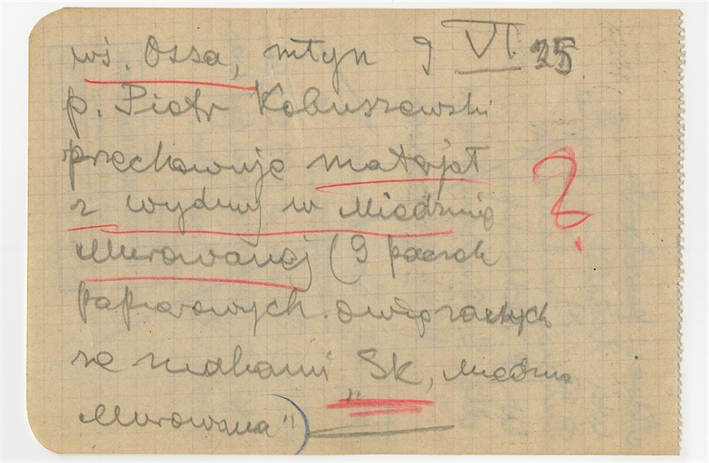 wś. Ossa, młyn 9 VI. 35
p. Piotr Kobuszewski
przechowuje materjał
z wydmy w Miedznie
Murowanej (9 paczek
papierowych
ze znakami „Sk, Miedzna
Murowana")
?